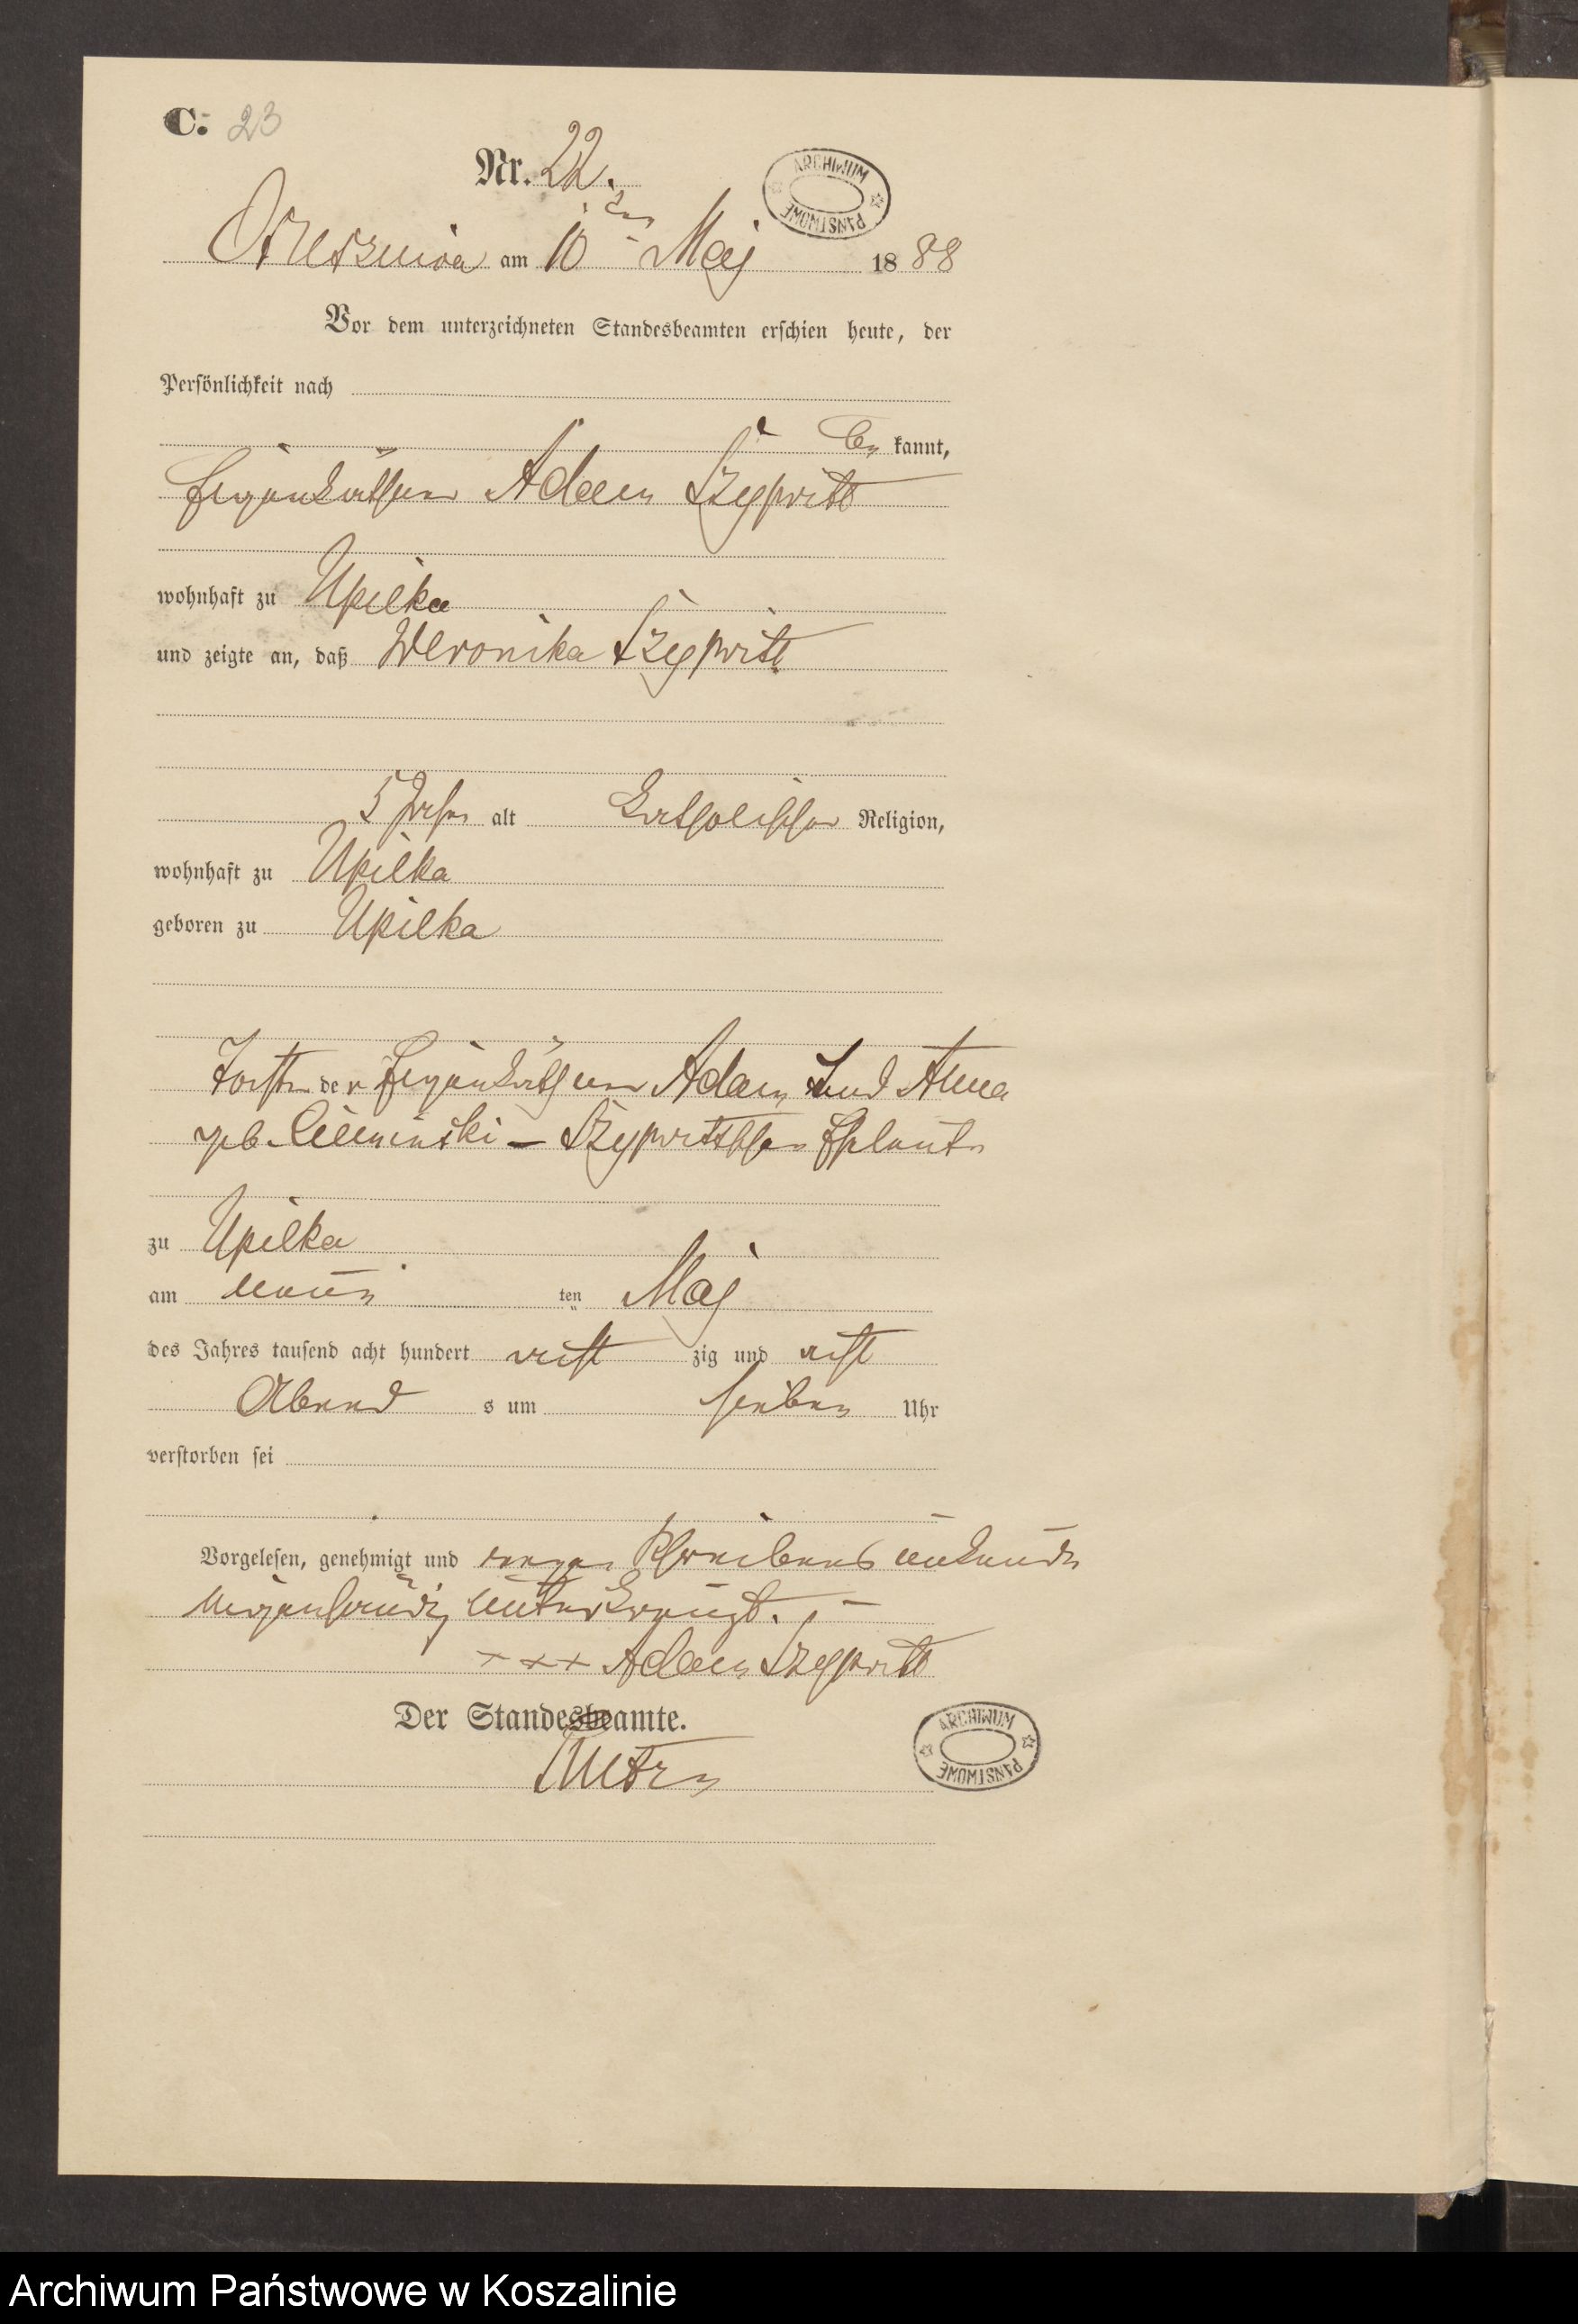 C. 23
Nr. 22.
ARCHIWUM PAŃSTWOWE
am 10ten Maj 1888
Vor dem unterzeichneten Standesbeamten erschien heute, der
Persönlichkeit nach
be kannt,
Eigenkäthner Adam Szypritt
wohnhaft zu Upilka
und zeigte an, daß Weronika Szypritt
5 Jahr alt katholischer Religion,
wohnhaft zu Upilka
geboren zu Upilka
Tochter der Eigenkäthner Adam und Anna
geb. Ciemiński – Szyprittschen Eheleute
zu Upilka
am neun ten Maj
des Jahres tausend acht hundert acht zig und acht
Abend s um sieben Uhr
verstorben sei
Vorgelesen, genehmigt und wegen Schreibens unkunde
unterkreuzt. –
+ + + Adam Szypritt
Der Standesbeamte.
ARCHIWUM PAŃSTWOWE
Archiwum Państwowe w Koszalinie